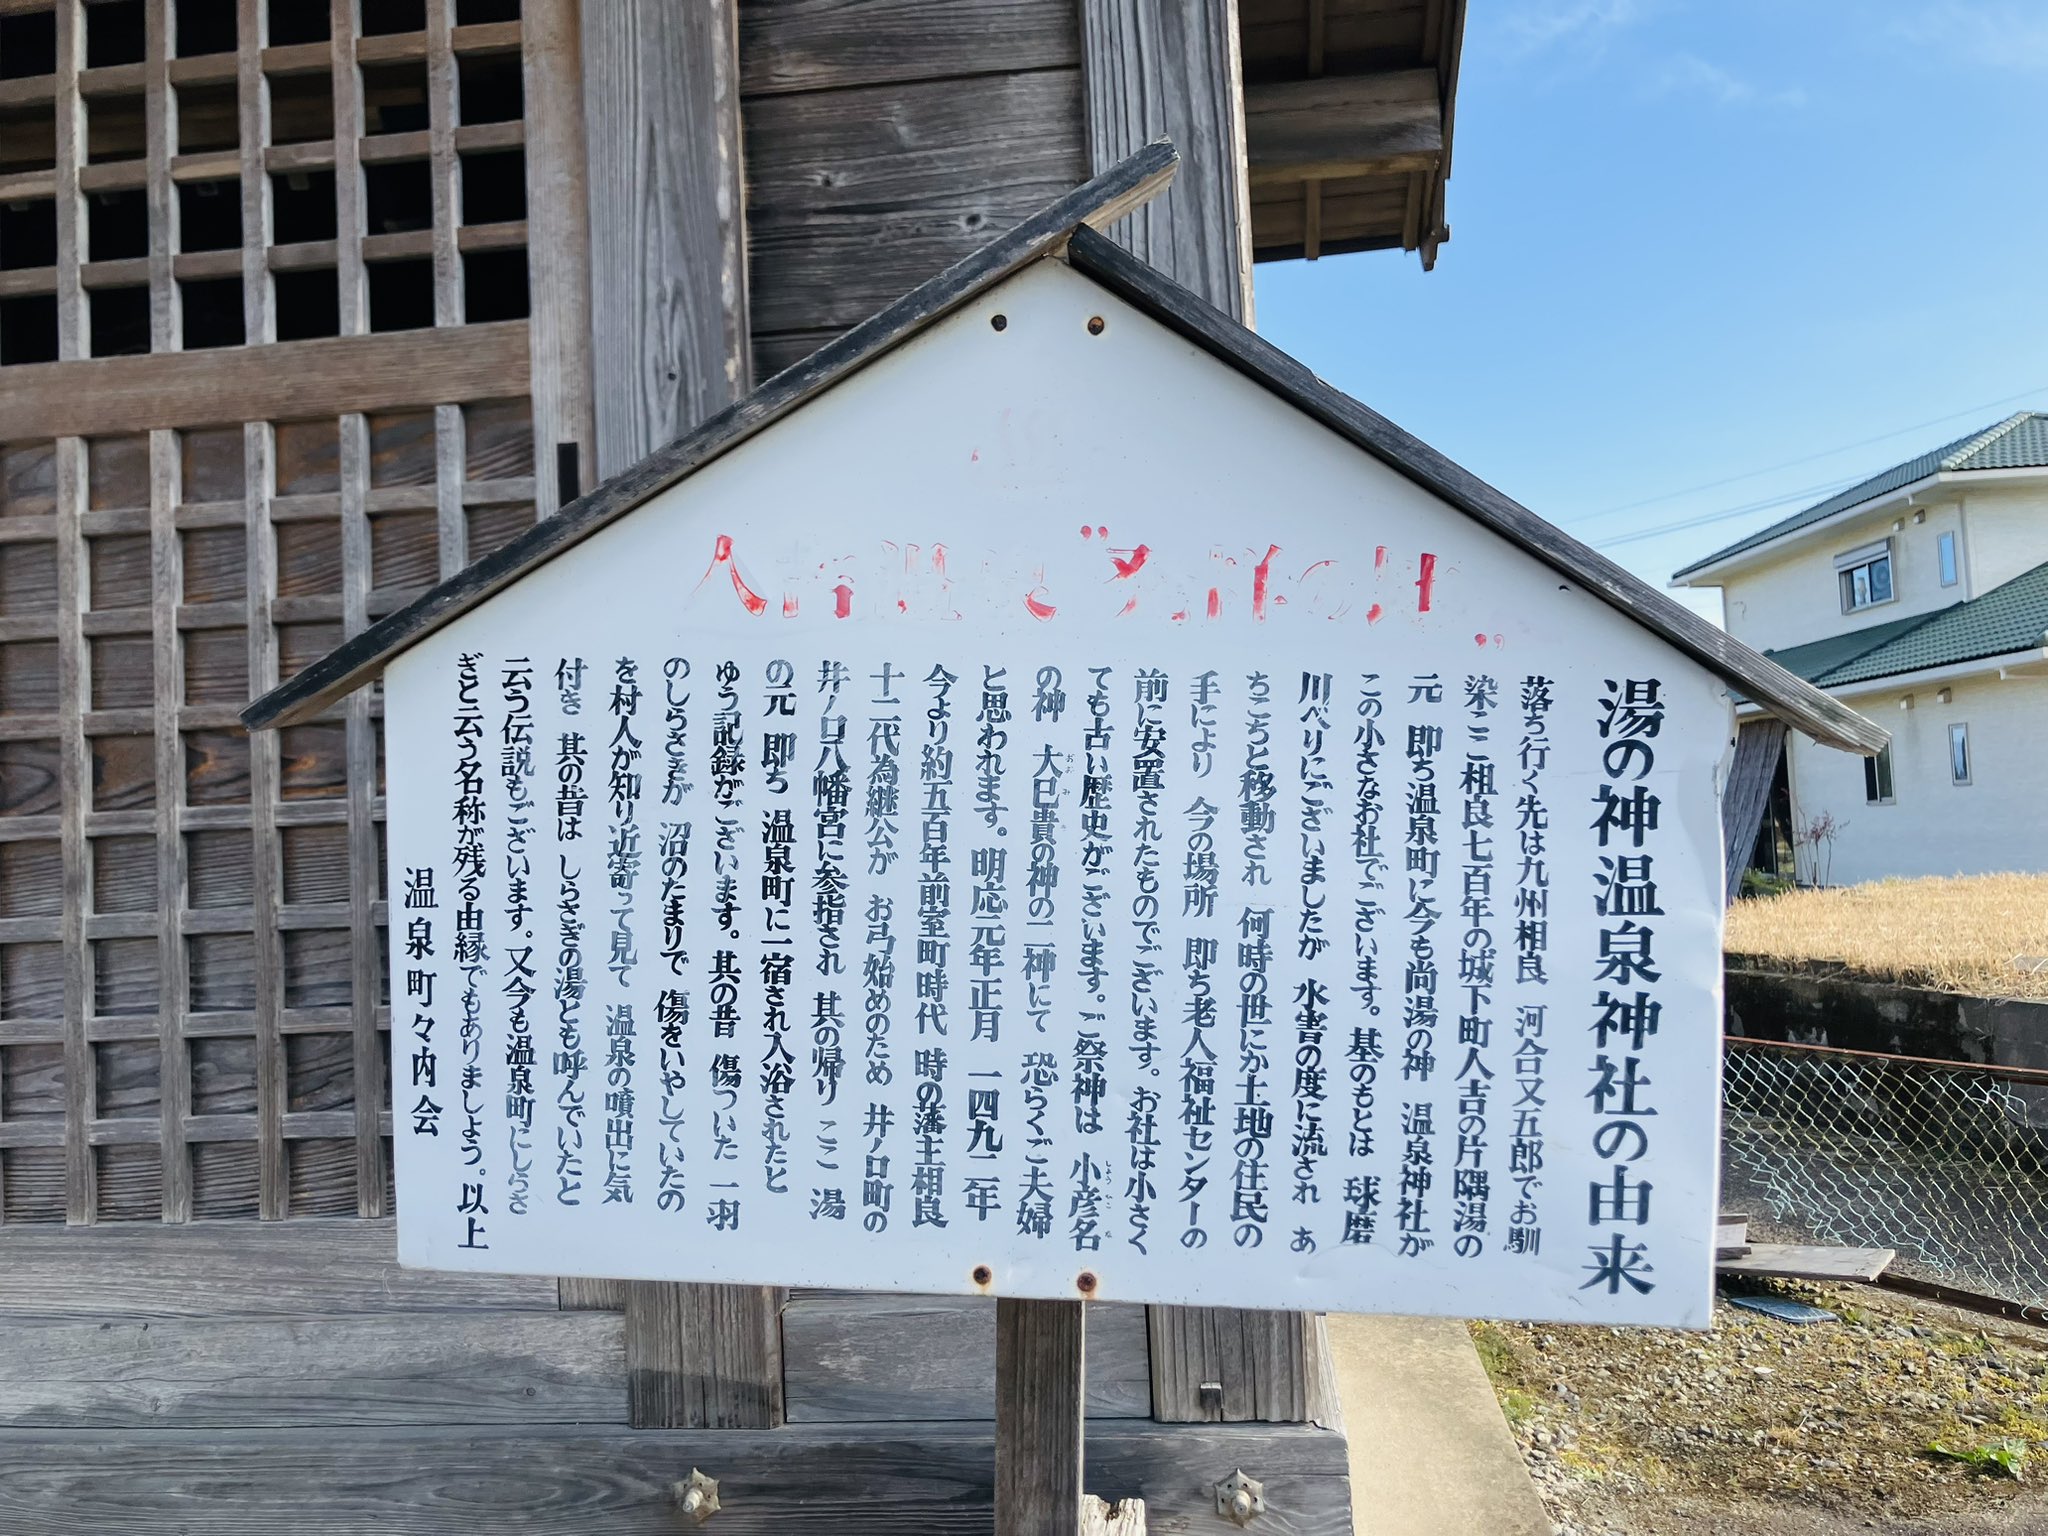 湯の神温泉神社の由来
落ち行く先は九州相良 河合又五郎でお馴
染ミニ相良七百年の城下町人吉の片隅湯の
元 即ち温泉町に今も尚湯の神 温泉神社が
この小さなお社でございます。基のもとは 球磨
川べりにございましたが 水害の度に流され あ
ちこちと移動され 何時の世にか土地の住民の
手により 今の場所 即ち老人福祉センターの
前に安置されたものでございます。お社は小さく
ても古い歴史がございます。ご祭神は 小彦名
の神 大巳貴の神の二神にて 恐らくご夫婦
と思われます。明応元年正月 一四九二年
今より約五百年前室町時代 時の藩主相良
十二代為継公が お弓始めのため 井ノ口町の
井ノ口八幡宮に参指され 其の帰り ここ 湯
の元 即ち 温泉町に一宿され入浴されたと
ゆう記録がございます。其の昔 傷ついた 一羽
のしらさぎが 沼のたまりで 傷をいやしていたの
を村人が知り近寄って見て 温泉の噴出に気
付き 其の昔は しらさぎの湯とも呼んでいたと
云う伝説もございます。又今も温泉町にしらさ
ぎと云う名称が残る由縁でもありましょう。以上
温泉町々内会